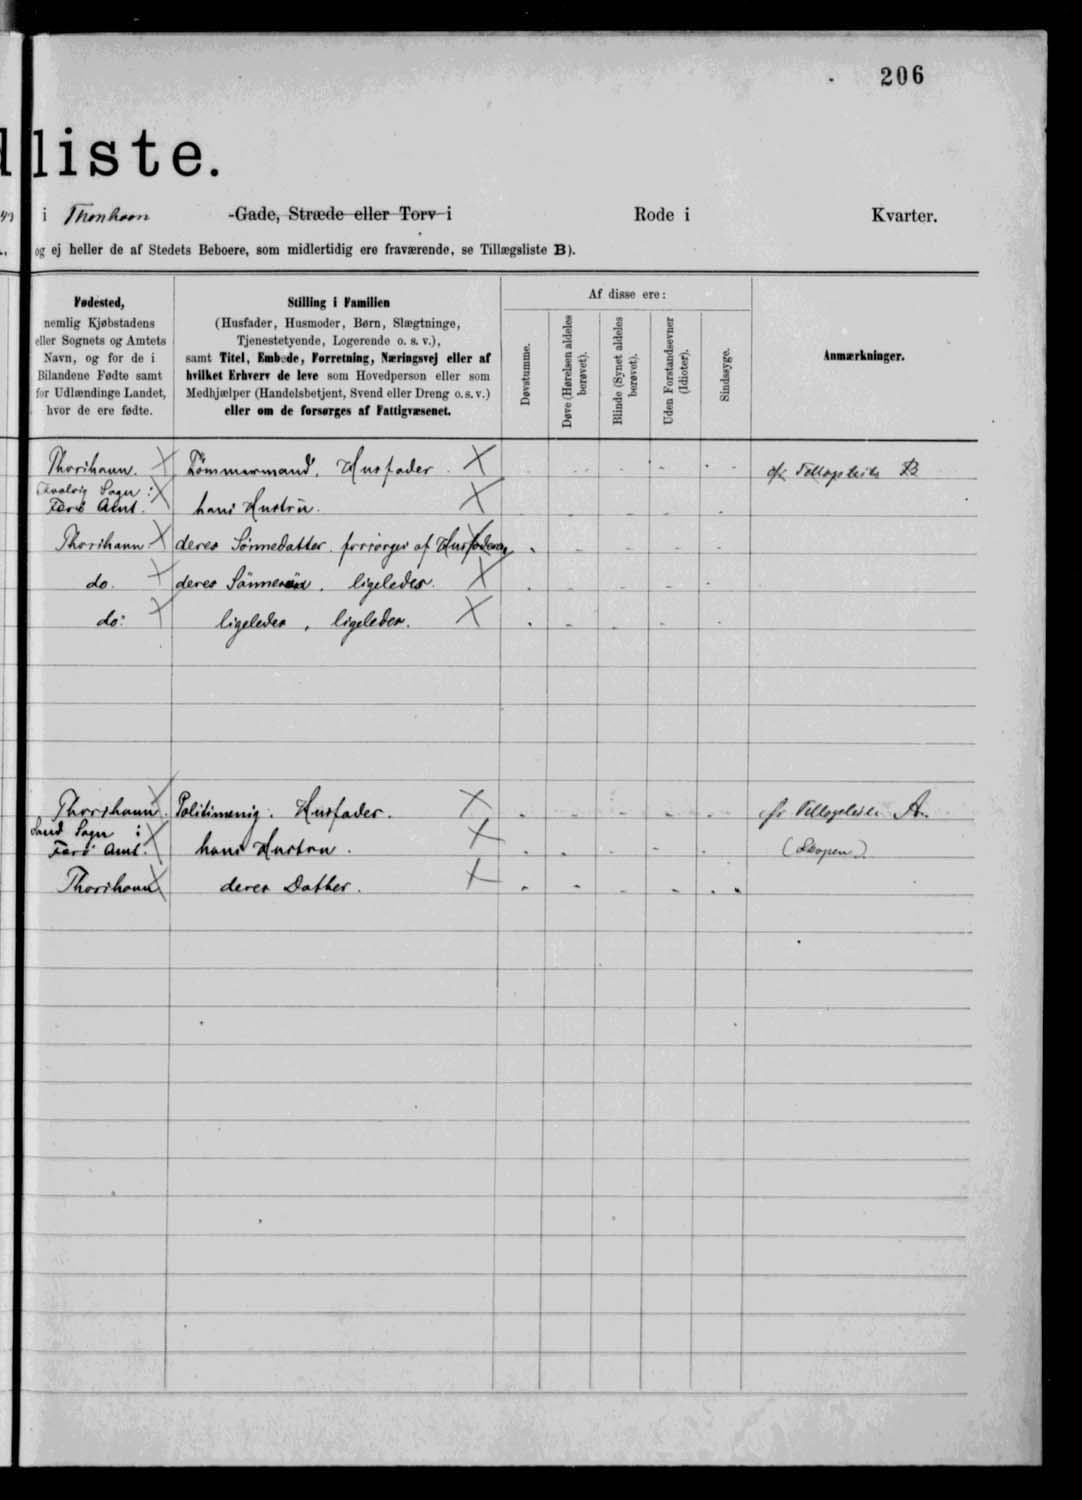 206
liste.
i Thorshavn -Gade, Stræde eller Torv i Rode i Kvarter.
og ej heller de af Stedets Beboere, som midlertidig ere fraværende, se Tillægsliste B).
Fødested,
nemlig Kjøbstadens
eller Sognets og Amtets
Navn, og for de i
Bilandene Fødte samt
for Udlændinge Landet,
hvor de ere fødte.
Stilling i Familien
(Husfader, Husmoder, Børn, Slægtninge,
Tjenestetyende, Logerende o. s. v.),
samt Titel, Embede, Forretning, Næringsvej eller af
hvilket Erhverv de leve som Hovedperson eller som
Medhjælper (Handelsbetjent, Svend eller Dreng o. s. v.)
eller om de forsørges af Fattigvæsenet.
Af disse ere:
Døvstumme.
Døve (Hørelsen aldeles
berøvet).
Blinde (Synet aldeles
berøvet).
Uden Forstandsevner
(Idioter).
Sindssyge.
Anmærkninger.
Thorshavn. Tømmermand. Husfader. cfr Tillægsliste B
Kvalvig Sogn:
Færø Amt. hans Hustru.
Thorshavn deres Sönnedatter. forsörges af Husfaderen
do. deres Sönnesön. ligeledes.
do. ligeledes, ligeledes.
Thorshavn. Politimenig. Husfader. cfr Tillægsliste A.
Sand Sogn:
Færö Amt. hans Hustru.
Thorshavn deres Datter.